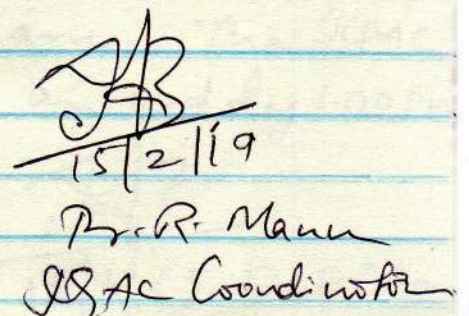 15/2/19
Dr. R. Mann
IQAC Coordinator